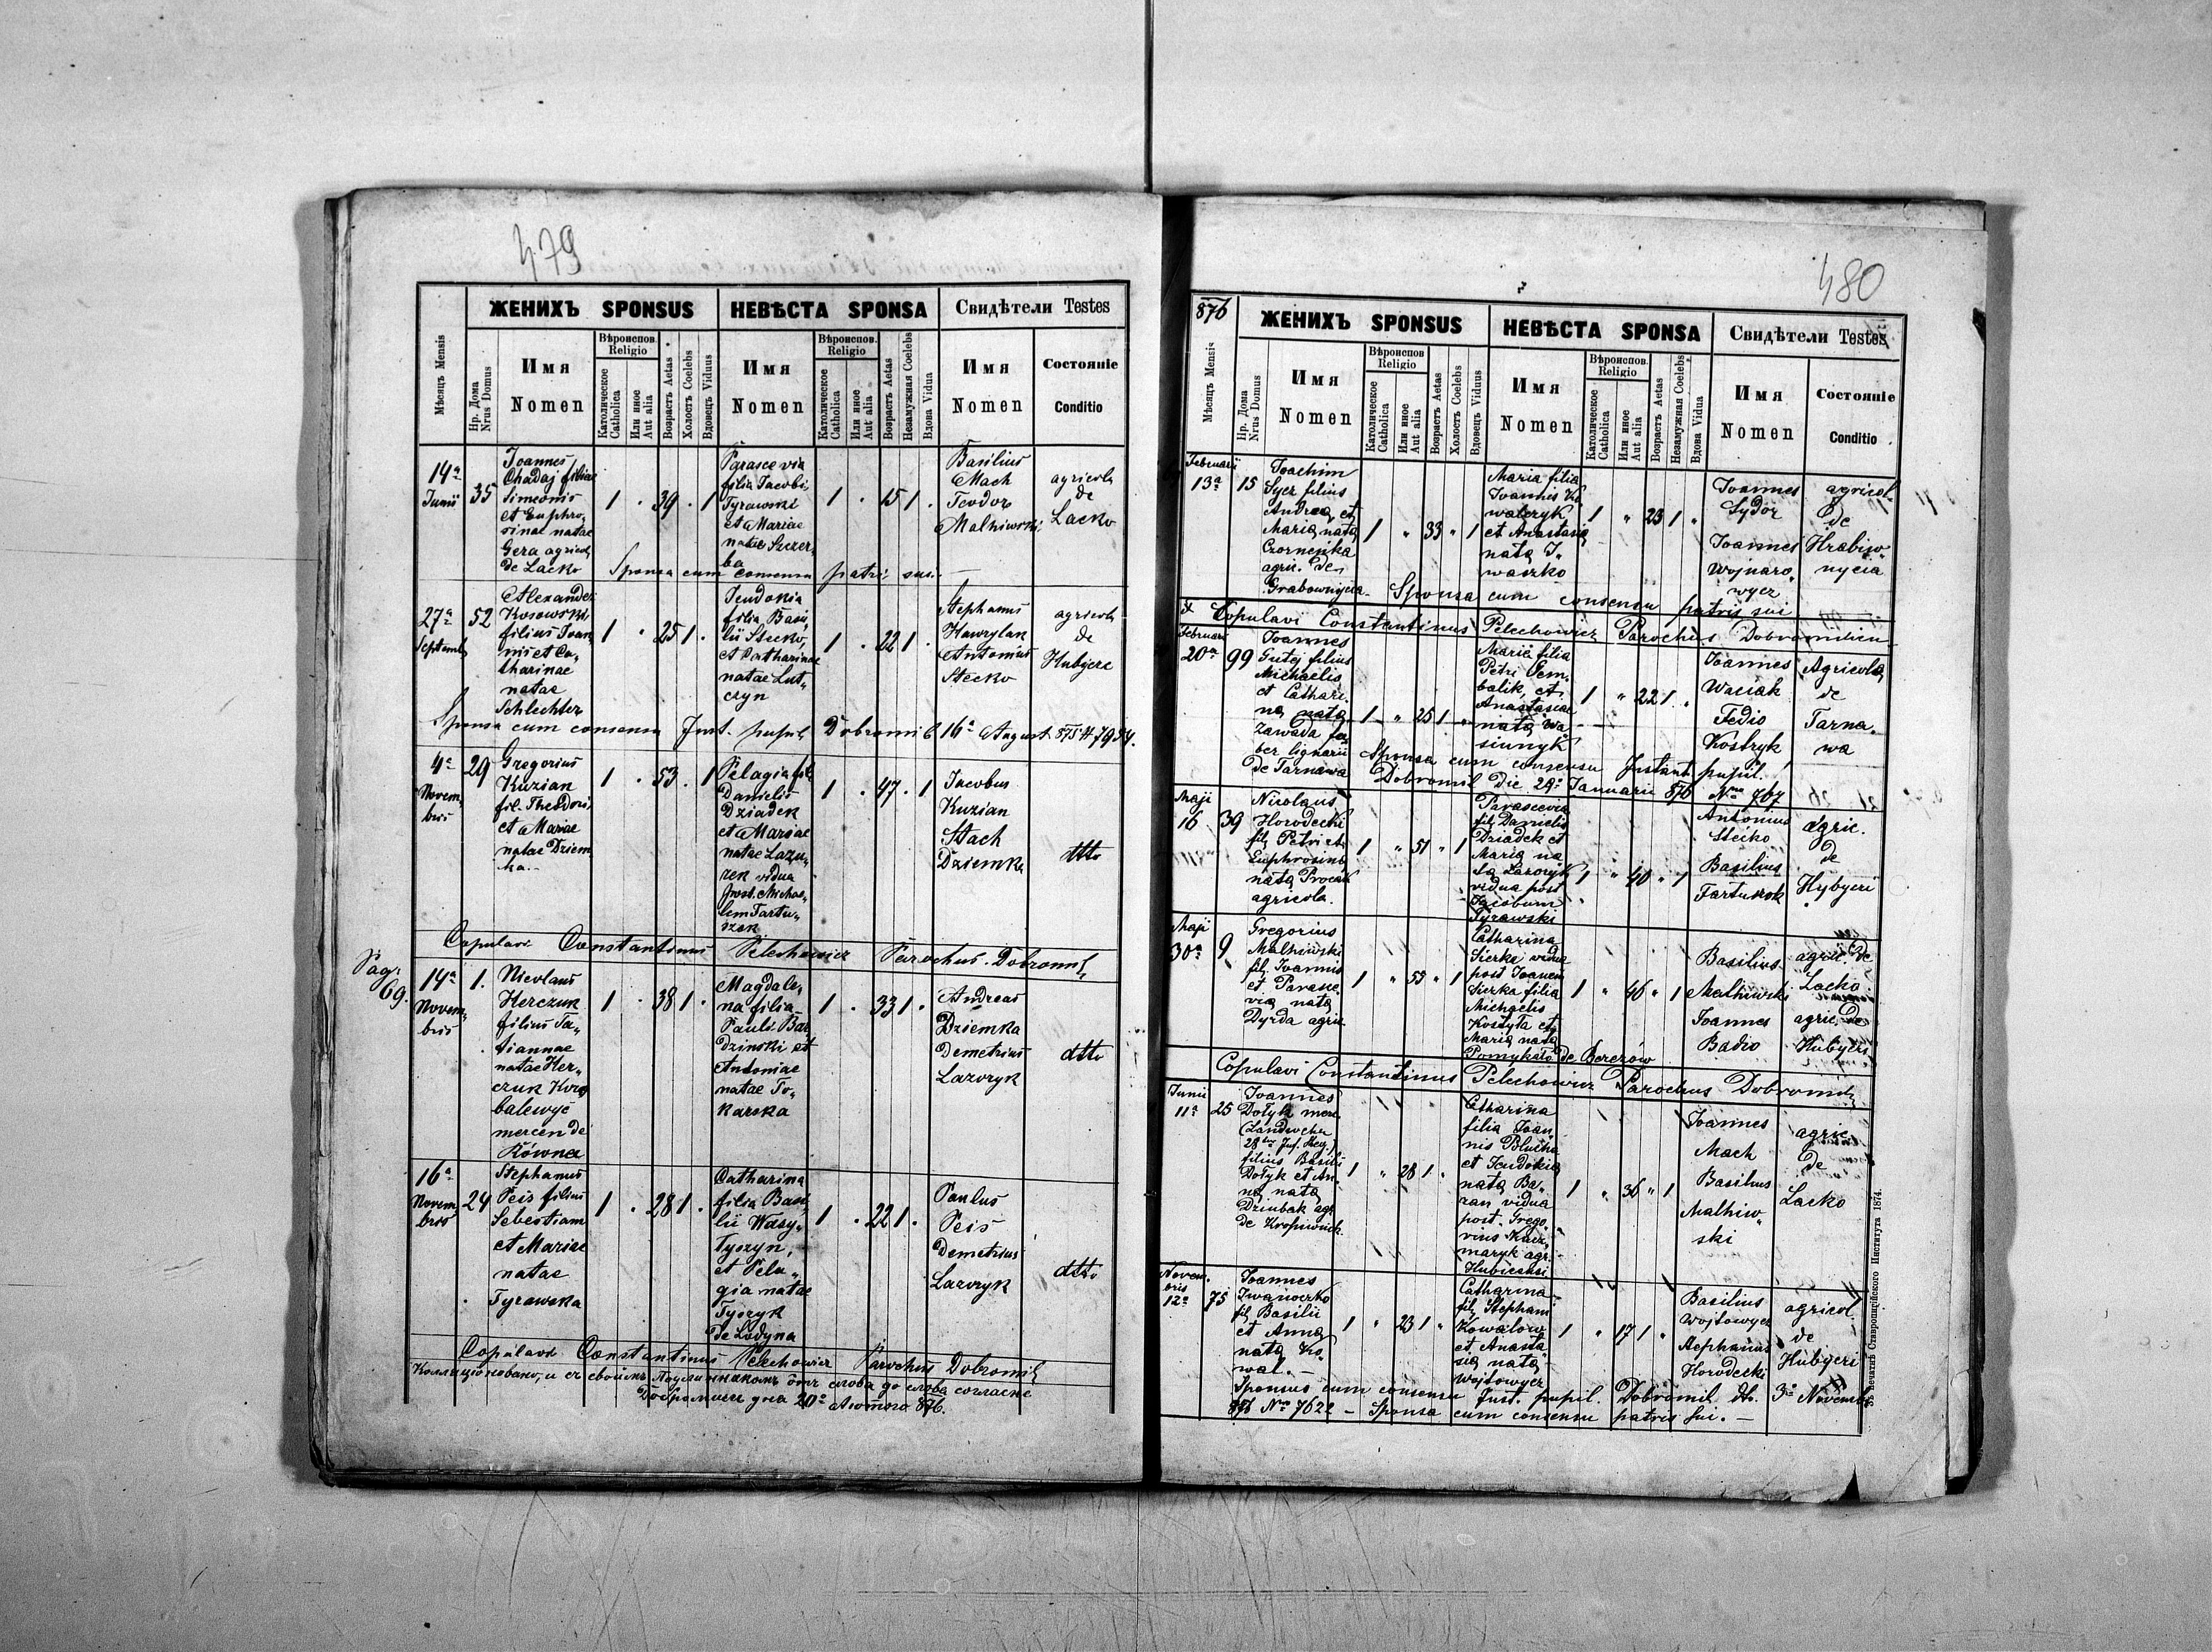 479
ЖЕНИХЪ SPONSUS
НЕВѢСТА SPONSA
Свидѣтели Testes
Мѣсяцъ Mensis
Нр. Дома Nrus Domus
Имя
Nomen
Вѣроиспов. Religio
Католическое Catholica
Или иное Aut alia
Возрастъ Aetas
Холостъ Coelebs
Вдовецъ Viduus
Имя
Nomen
Вѣроиспов. Religio
Католическое Catholica
Или иное Aut alia
Возрастъ Aetas
Незамужная Coelebs
Вдова Vidua
Имя
Nomen
Состоянiе
Conditio
14a
Junii
35
Joannes
Chadaj filius
Simeonis
et Euphro„
sinae natae
Gera agricola
de Lacko
1 . 39 . 1
Parascevia
filia Jacobi
Tyrawski
et Mariae
natae Szczer„
ba
1 . 15 1 .
Basilius
Mach
Teodor
Malhiwski
agricola
de
Lacko
Sponsa cum consensu patris sui. —
27a
Septemb
52
Alexander
Kosowski
filius Joan„
nis et Ca„
tharinae
natae
Schlechter
1 . 25 1 .
Teudokia
filia Basi„
lii Stecko,
et Catharinae
natae Lut„
czyn
1 . 22 1 .
Stephanus
Hawrylak
Antonius
Stecko
agricola
de
Hubyce
Sponsa cum consensu Just. pupil. Dobromil 16a August. 875 N 7954.
4a
Novem„
bris
29
Gregorius
Kuzian
fil. Theodori
et Mariae
natae Dziem„
ka.—
1 . 53 . 1
Pelagia fil.
Danielis
Dziadek
et Mariae
natae Lazu„
rek vidua
post. Michae„
lem Fartu„
szok
1 . 47 . 1
Jacobus
Kuzian
Stach
Dziemka
dtto
Copulavi Constantinus Pelechowicz Parochus Dobromil.
Pag:
69.
14a
Novem„
bris
1.
Nicolaus
Herczuk
filius Ta„
tiannae
natae Her„
czuk
balewyc
mercen de
Równea
1 . 38 1 .
Magdale„
na filia
Pauli Bar
dzinski et
Antoniae
natae To„
karska
1 . 33 1 .
Andreas
Dziemka
Demetrius
Lazoryk
dtto
16a
Novem
bris
24
Stephanus
Peis filius
Sebestiani
et Mariae
natae
Tyrawska
1 . 28 1 .
Catharina
filia Basi„
lii Wasy„
tyszyn,
et Pela„
gia natae
Tyszyk
de Lodyna
1 . 22 1 .
Paulus
Peis
Demetrius
Lazoryk
dtto
Copulavi Constantinus Pelechowicz Parochus Dobromil
480
876
ЖЕНИХЪ SPONSUS
НЕВѢСТА SPONSA
Свидѣтели Testes
Мѣсяцъ Mensis
Нр. Дома Nrus Domus
Имя
Nomen
Вѣроиспов. Religio
Католическое Catholica
Или иное Aut alia
Возрастъ Aetas
Холостъ Coelebs
Вдовецъ Viduus
Имя
Nomen
Вѣроиспов. Religio
Католическое Catholica
Или иное Aut alia
Возрастъ Aetas
Незамужная Coelebs
Вдова Vidua
Имя
Nomen
Состоянiе
Conditio
Februarii
13a
15
Joachim
Sycz filius
Andrea, et
Maria nata
Czornejka
agri. de
Grabownycia
1 „ 33 „ 1
Maria filia
Joannis Ko
walczyk
et Anastasia
nata I„
waszko
1 „ 23 1 „
Joannes
Sydor
Joannes
Wojnaro„
wycz
agricol.
de
Hrabiw„
nycia
Sponsa cum consensu patris sui
Copulavi Constantinus Pelechowicz Parochus Dobromilen
Februari
20a
99
Joannes
Gutej filius
Michaelis
et Cathari„
na nata
Zawada fa„
ber lignarii
de Tarnawa
1 „ 25 1 „
Maria filia
Petri Dem„
balik, et
Anastasiae
nata Wa„
siunyk
1 „ 22 1 „
Joannes
Waciak
Fedio
Kostryk
Agricola
de
Tarna„
wa
Sponsa cum consensu Justant. pupil.
Dobromil Die 29a Januarii 876 Nro 767
Maji
16
39
Nicolaus
Horodecki
fil. Petri et
Euphrosina
nata Procak
agricola.
1 „ 51 „ 1
Parascevia
fil. Danielis
Dziadek et
Maria na
ta Lazoryk
vidua post
Jacobum
Tyrawski
1 „ 40 „ 1
Antonius
Stecko
Basilius
Fartuszok
agric.
de
Hybyci
Maji
30a
9
Gregorius
Malhiwski
fil. Joannis
et Parasce„
via nata
Dyrda agric
1 „ 55 „ 1
Catharina
Sierka vidua
post Joanem
Sierka filia
Michaelis
Kostyta et
Maria nata
Pomykało de Berezów
1 „ 46 „ 1
Basilius
Malhiwski
Joannes
Badio
agric. de
Lacko
agric. de
Hubyci
Copulavi Constantinus Pelechowicz Parochus Dobromil.
Junii
11a
25
Joannes
Dotyk merc.
(Landwehr
filius Basilii
Dotyk et An„
na nata
Dziubak agr.
de Kropiwnik
1 „ 28 1 „
Catharina
filia Joan
nis
et Teudokia
nata Ba„
ran vidua
post. Grego„
rius Kacz„
maryk agr.
1 „ 36 „ 1
Joannes
Mach
Basilius
Malhiw„
ski
agric.
de
Lacko
Novem„
bris
12a
75
Joannes
Iwanoczko
fil. Basilii
et Anna
nata Ko„
wal.—
1 „ 23 1 „
Catharina
fil. Stephani
Kowalow
et Anasta„
sia nata
Wojtowycz
1 „ 17 1 „
Basilius
Wojtowycz
Stephanus
Horodecki
agricol.
de
Hubyci
Sponsus cum consensu Just. pupil. Dobromil dto. 3a Novembr
876 Nro 7622 — Sponsa cum consensu patris sui. —
Въ печатнѣ Ставропигiйского Института 1874.